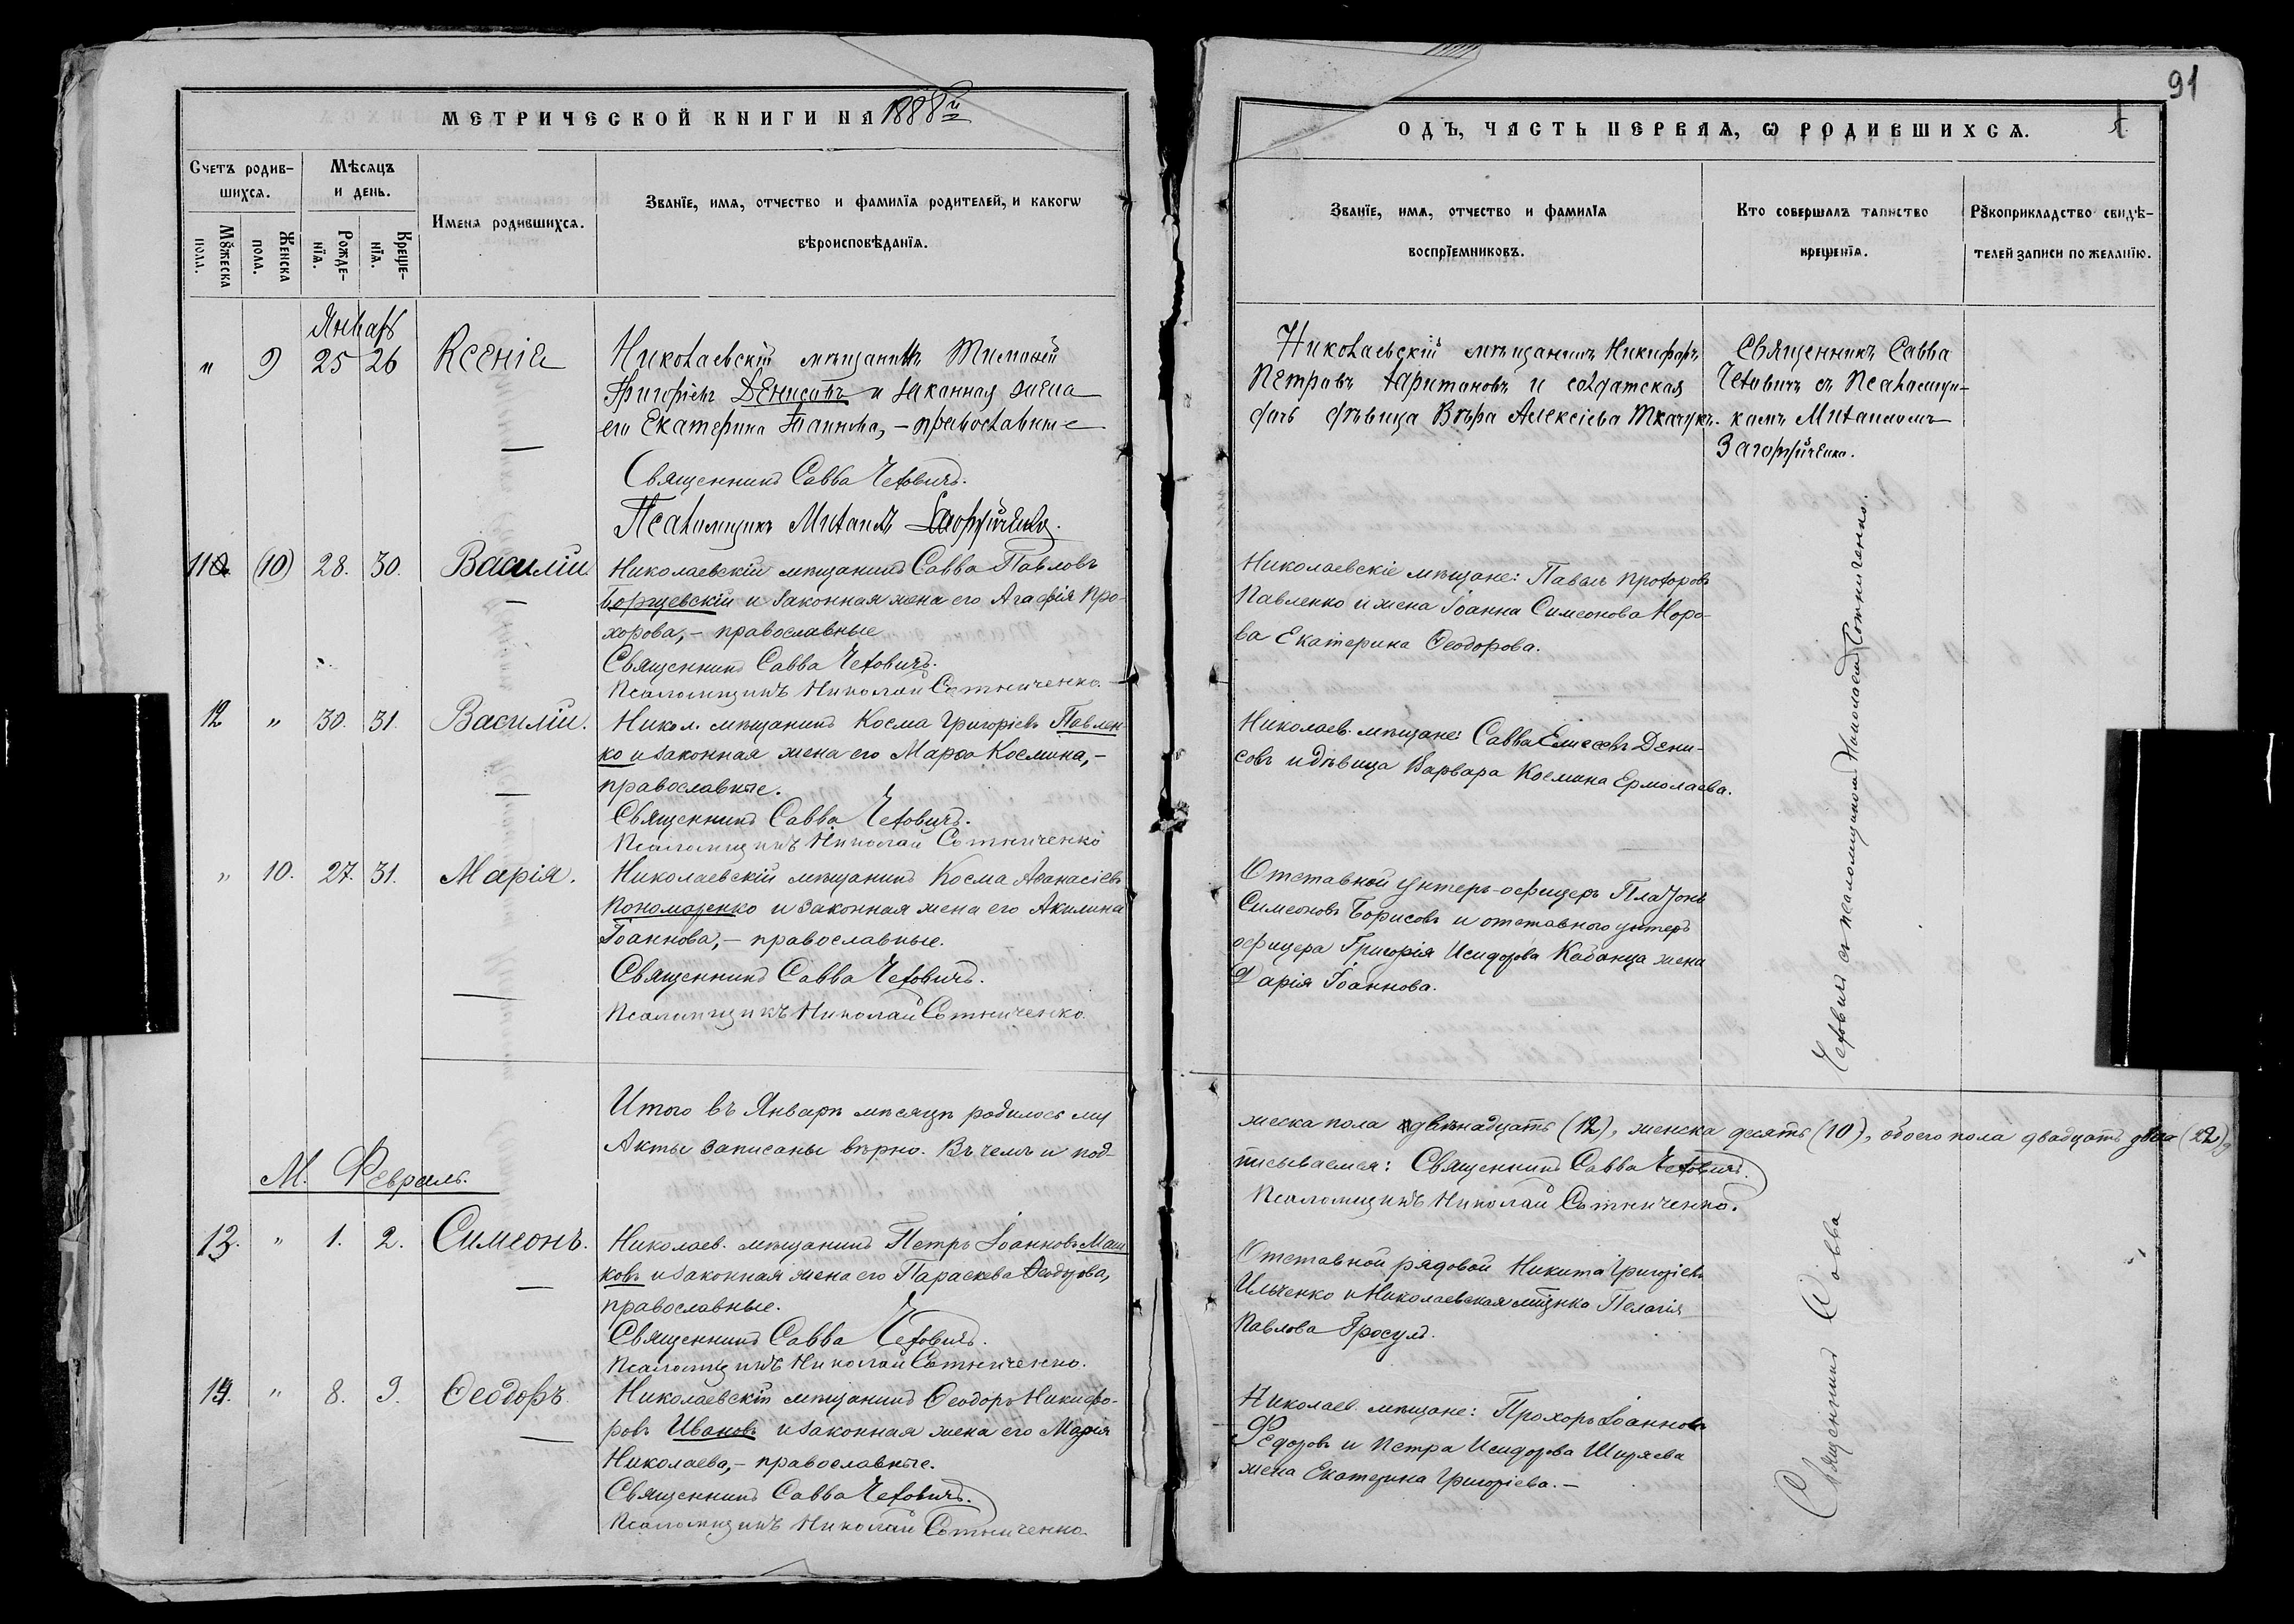 МЕТРИЧЕСКОЙ КНИГИ НА 1888й
Счетъ родив-
шихся.
Мѣсяцъ
и день.
Имена родившихся.
Званїе, имя, отчество и фамилїя родителей, и какогѡ
вѣроисповѣданїя.
Мꙋжеска
пола.
Женска
пола.
Рожде-
нїя.
Креще-
нїя.
Январь
" 9 25 26 Ксенія
Николаевскій мѣщанинъ Тимоѳей
Григоріевъ Денисовъ и законная жена
его Екатерина Іоаннова, – православные
Священникъ Савва Чехович.
Псаломщикъ Михаилъ
11 (10) 28. 30. Василій
Николаевскій мѣщанинъ Савва Павловъ
Борщевскій и законная жена его Агафія Про-
хорова, – православные
Священникъ Савва Чеховичъ.
Псаломщикъ Николай Сотниченко.
12 " 30. 31. Василій.
Никол. мѣщанинъ Косма Григоріевъ Павлен-
ко и законная жена его Марѳа Космина, –
православные.
Священникъ Савва Чеховичъ.
Псаломщикъ Николай Сотниченко
" 10. 27. 31. Марія.
Николаевскій мѣщанинъ Косма Аѳанасіевъ
Пономаренко и законная жена его Акилина
Іоаннова, – православные.
Священникъ Савва Чеховичъ.
Псаломщикъ Николай Сотниченко.
Итого въ Январѣ мѣсяцѣ родилось му
Акты записаны вѣрно. Въ чемъ и под-
М. Февраль.
13. " 1. 2. Симеонъ.
Николаев. мѣщанинъ Петръ Іоанновъ Маш
ковъ и законная жена его Параскева Ѳеодорова,
православные.
Священникъ Савва Чеховичъ.
Псаломщикъ Николай Сотниченко.
14. " 8. 9. Ѳеодоръ.
Николаевскій мѣщанинъ Ѳеодоръ Никифо-
ровъ Ивановъ и законная жена его Марія
Николаева, – православные.
Священникъ Савва Чеховичъ.
Псаломщикъ Николай Сотниченко.
91
ОДЪ, ЧАСТЬ ПЕРВАЯ, Ѡ РОДИВШИХСЯ.
Званїе, имя, отчество и фамилїя
воспрїемниковъ.
Кто совершалъ таинство
крещенїя.
Рꙋкоприкладство свидѣ-
телей записи по желанїю.
Николаевскій мѣщанинъ Никифоръ
Петровъ Харитоновъ и солдатская
дочь дѣвица Вѣра Алексіева Ткачукъ.
Священникъ Савва
Чеховичъ съ Псаломщи-
комъ Михаиломъ
Николаевскіе мѣщане: Павелъ Прохоровъ
Павленко и жена Іоанна Симеонова Норо-
ва Екатерина Ѳеодорова.
Николаев. мѣщане: Савва Елисеевъ Дени-
совъ и дѣвица Варвара Космина Ермолаева.
Отставной унтеръ-офицеръ Платонъ
Симеоновъ Борисовъ и отставного унтеръ
офицера Григорія Исидорова Кабанца жена
Дарія Іоаннова.
жеска пола двѣнадцать (12), женска десять (10), обоего пола двадцать два (22),
писываемся: Священникъ Савва Чеховичъ.
Псаломщикъ Николай Сотниченко.
Отставной рядовой Никита Григоріевъ
Ильченко и Николаевская мѣщнка Пелагія
Павлова Гросулъ.
Николаев. мѣщане: Прохоръ Іоанновъ
Федоровъ и Петра Исидорова Ширяева
жена Екатерина Григоріева. –
Священникъ Савва
Чеховичъ съ псаломщикомъ Николаемъ Сотниченко.